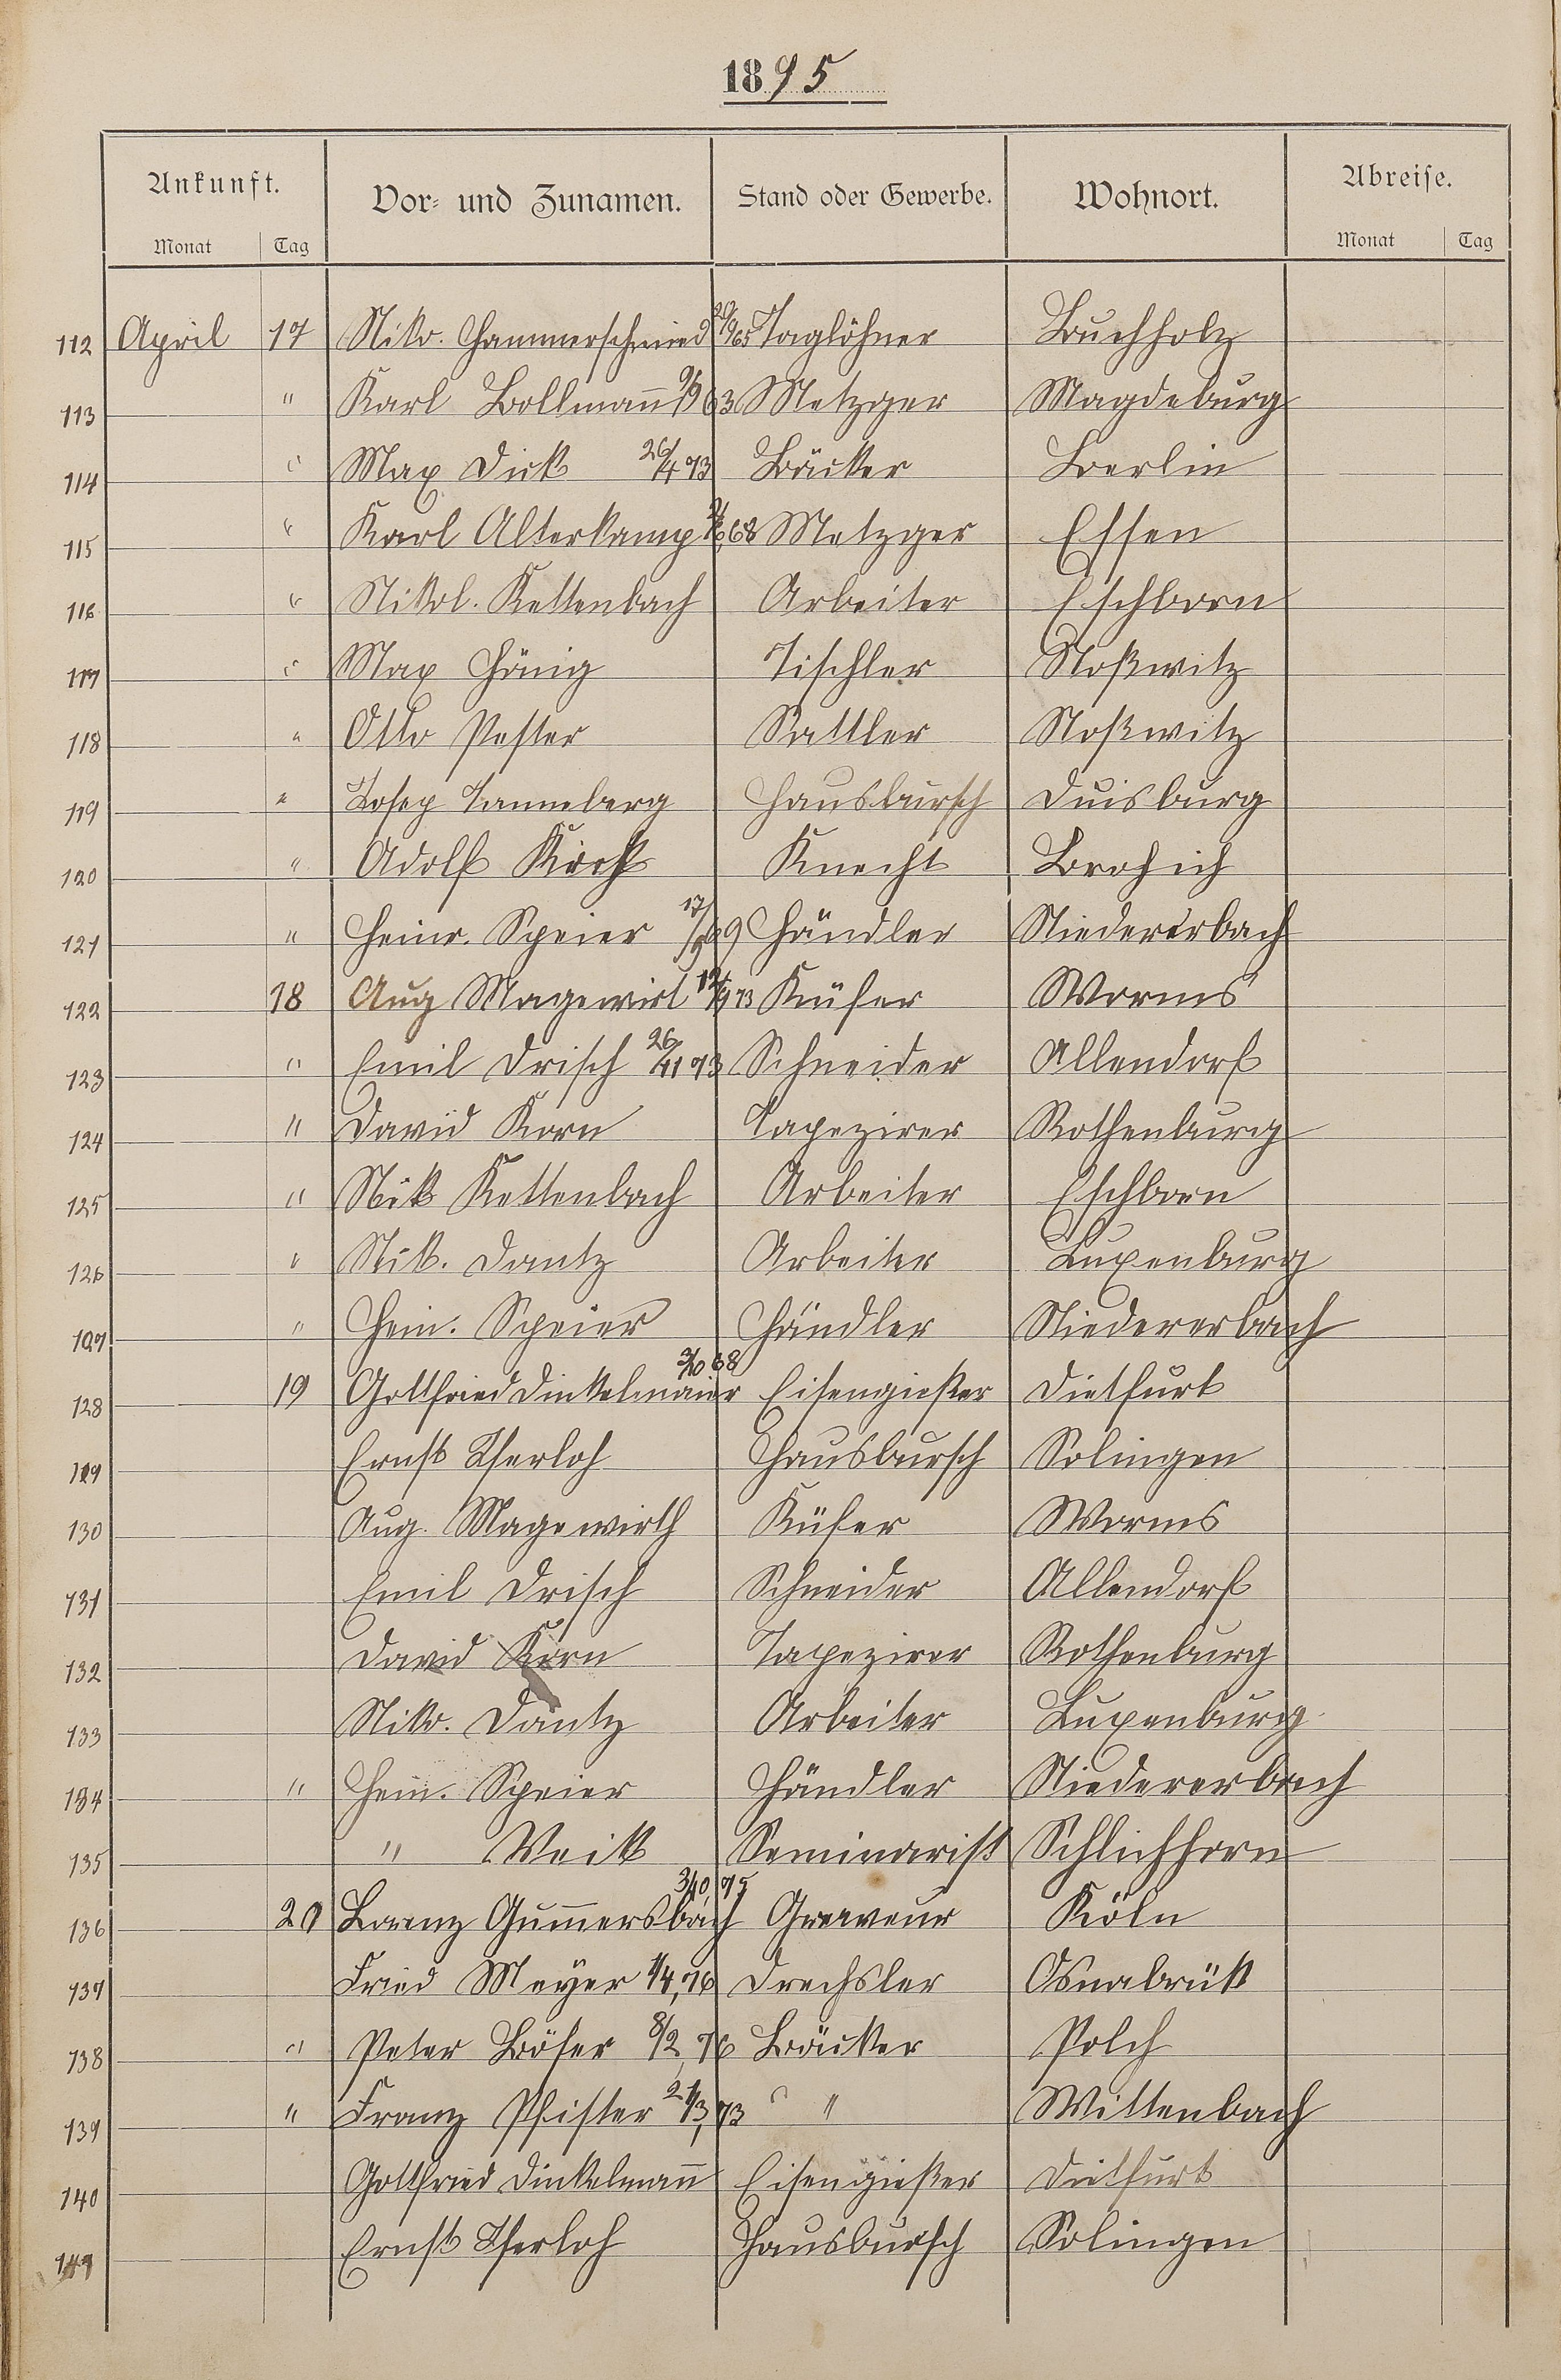 1895
Ankunft. Vor- und Zunamen. Stand oder Gewerbe. Wohnort. Abreise.
Monat Tag Monat Tag
112 April 17 Niko. Hammerschmied 65 Taglöhner Buchholz
113 " Karl Bollman̄ 9/9 63 Metzger Magdeburg
114 " Max Dick 26/4 73 Bäcker Berlin
115 " Karl Alterkamp 68 Metzger Essen
116 " Nikol. Kettenbach Arbeiter Eschborn
117 " Max Hönig Tischler Noßwitz
118 " Otto Pester Sattler Noßwitz
119 " Josep Tanneberg Hausbursch Duisburg
120 " Adolf Knecht Broich
121 " Heinr. Speier 17/ Händler Niedererbach
122 18 Aug Magewirt 12/9 73 Küfer Worms
123 " Emil Drisch 26/11 73 Schneider Allendorf
124 " David Korn Tapezirer Rothenburg
125 " Nik Kettenbach Arbeiter Eschborn
126 " Nik. Dantz Arbeiter Luxenburg
127 " Hein. Speier Händler Niedererbach
128 19 Gottfried Dinkelmaier 68 Eisengießer Dietfurt
129 Ernst Iserloh Hausbursch Solingen
130 Aug. Magewirth Küfer Worms
131 Emil Drisch Schneider Allendorf
132 David Korn Tapezirer Rothenburg
133 Niko. Dantz Arbeiter Luxenburg
134 " Hein. Speier Händler Niedererbach
135 " Weik Seminarist Schlichhorn
136 20 Lorenz Gum̄ersbach 3/10, 75 Graveur Köln
137 Fried Meyer 1/4, 76 Drechsler Osnabrük
138 " Peter Böser 8/2, 76 Bäcker Polch
139 " Franz Pfister 21/3, 73 " " Wittenbach
140 Gottfried Dinkelman̄ Eisengießer Dietfurt
141 Ernst Iserloh Hausbursch Solingen